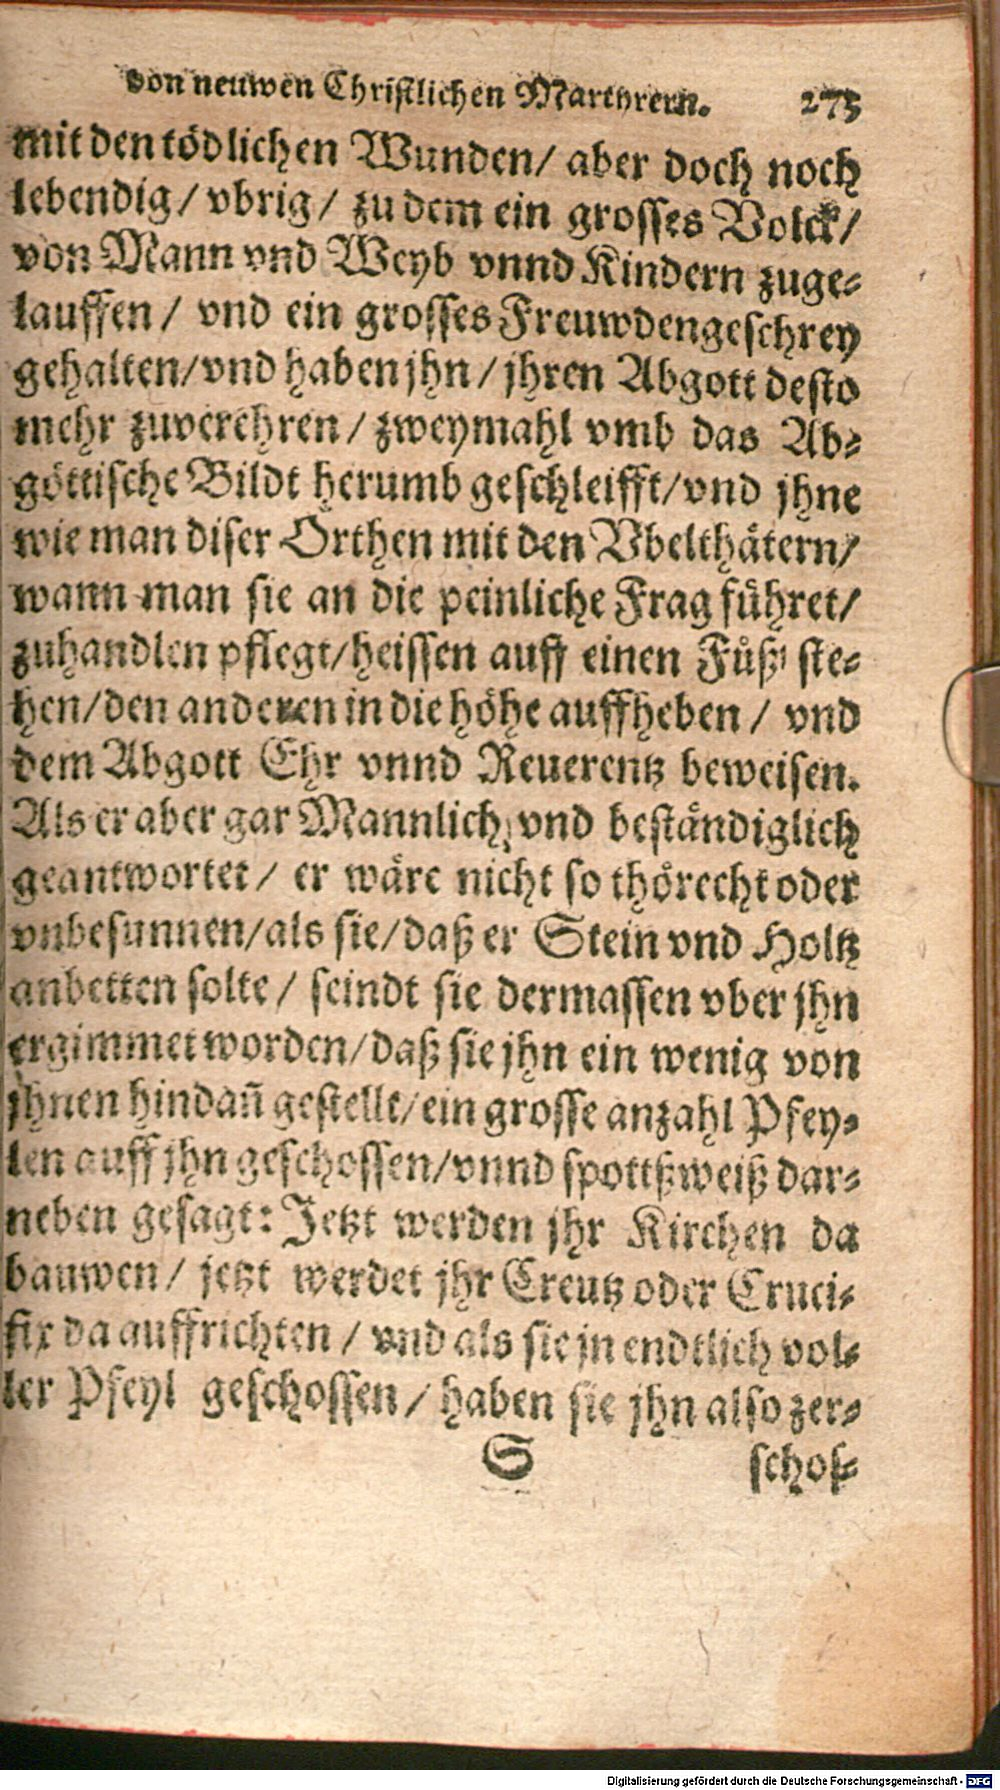 von neuwen Christlichen Martyrern. 273
mit den tödlichen Wunden/ aber doch noch
lebendig/ vbrig/ zu dem ein grosses Volck/
von Mann vnd Weyb vnnd Kindern zuge-
lauffen/ vnd ein grosses Freuwdengeschrey
gehalten/vnd haben jhn/ jhren Abgott desto
mehr zuverehren/ zweymahl vmb das Ab-
göttische Bildt herumb geschleifft/vnd jhne
wie man diser Orthen mit den Vbelthätern/
wann man sie an die peinliche Frag führet/
zuhandlen pflegt/heissen auff einen Fůß ste-
hen/den anderen in die höhe auffheben/ vnd
dem Abgott Ehr vnnd Reuerentz beweisen.
Als er aber gar Mannlich vnd beständiglich
geantwortet/ er wäre nicht so thörecht oder
vnbesunnen/als sie/daß er Stein vnd Holtz
anbetten solte/ seindt sie dermassen vber jhn
ergimmet worden/daß sie jhn ein wenig von
jhnen hindañ gestellt/ein grosse anzahl Pfey-
len auff jhn geschossen/vnnd spottßweiß dar-
neben gesagt: Jetzt werden jhr Kirchen da
bauwen/ jetzt werdet jhr Creutz oder Cruci-
fix da auffrichten/ vnd als sie jn endtlich vol-
ler Pfeyl geschossen/ haben sie jhn also zer-
S schos-
Digitalisierung gefördert durch die Deutsche Forschungsgemeinschaft - DFG